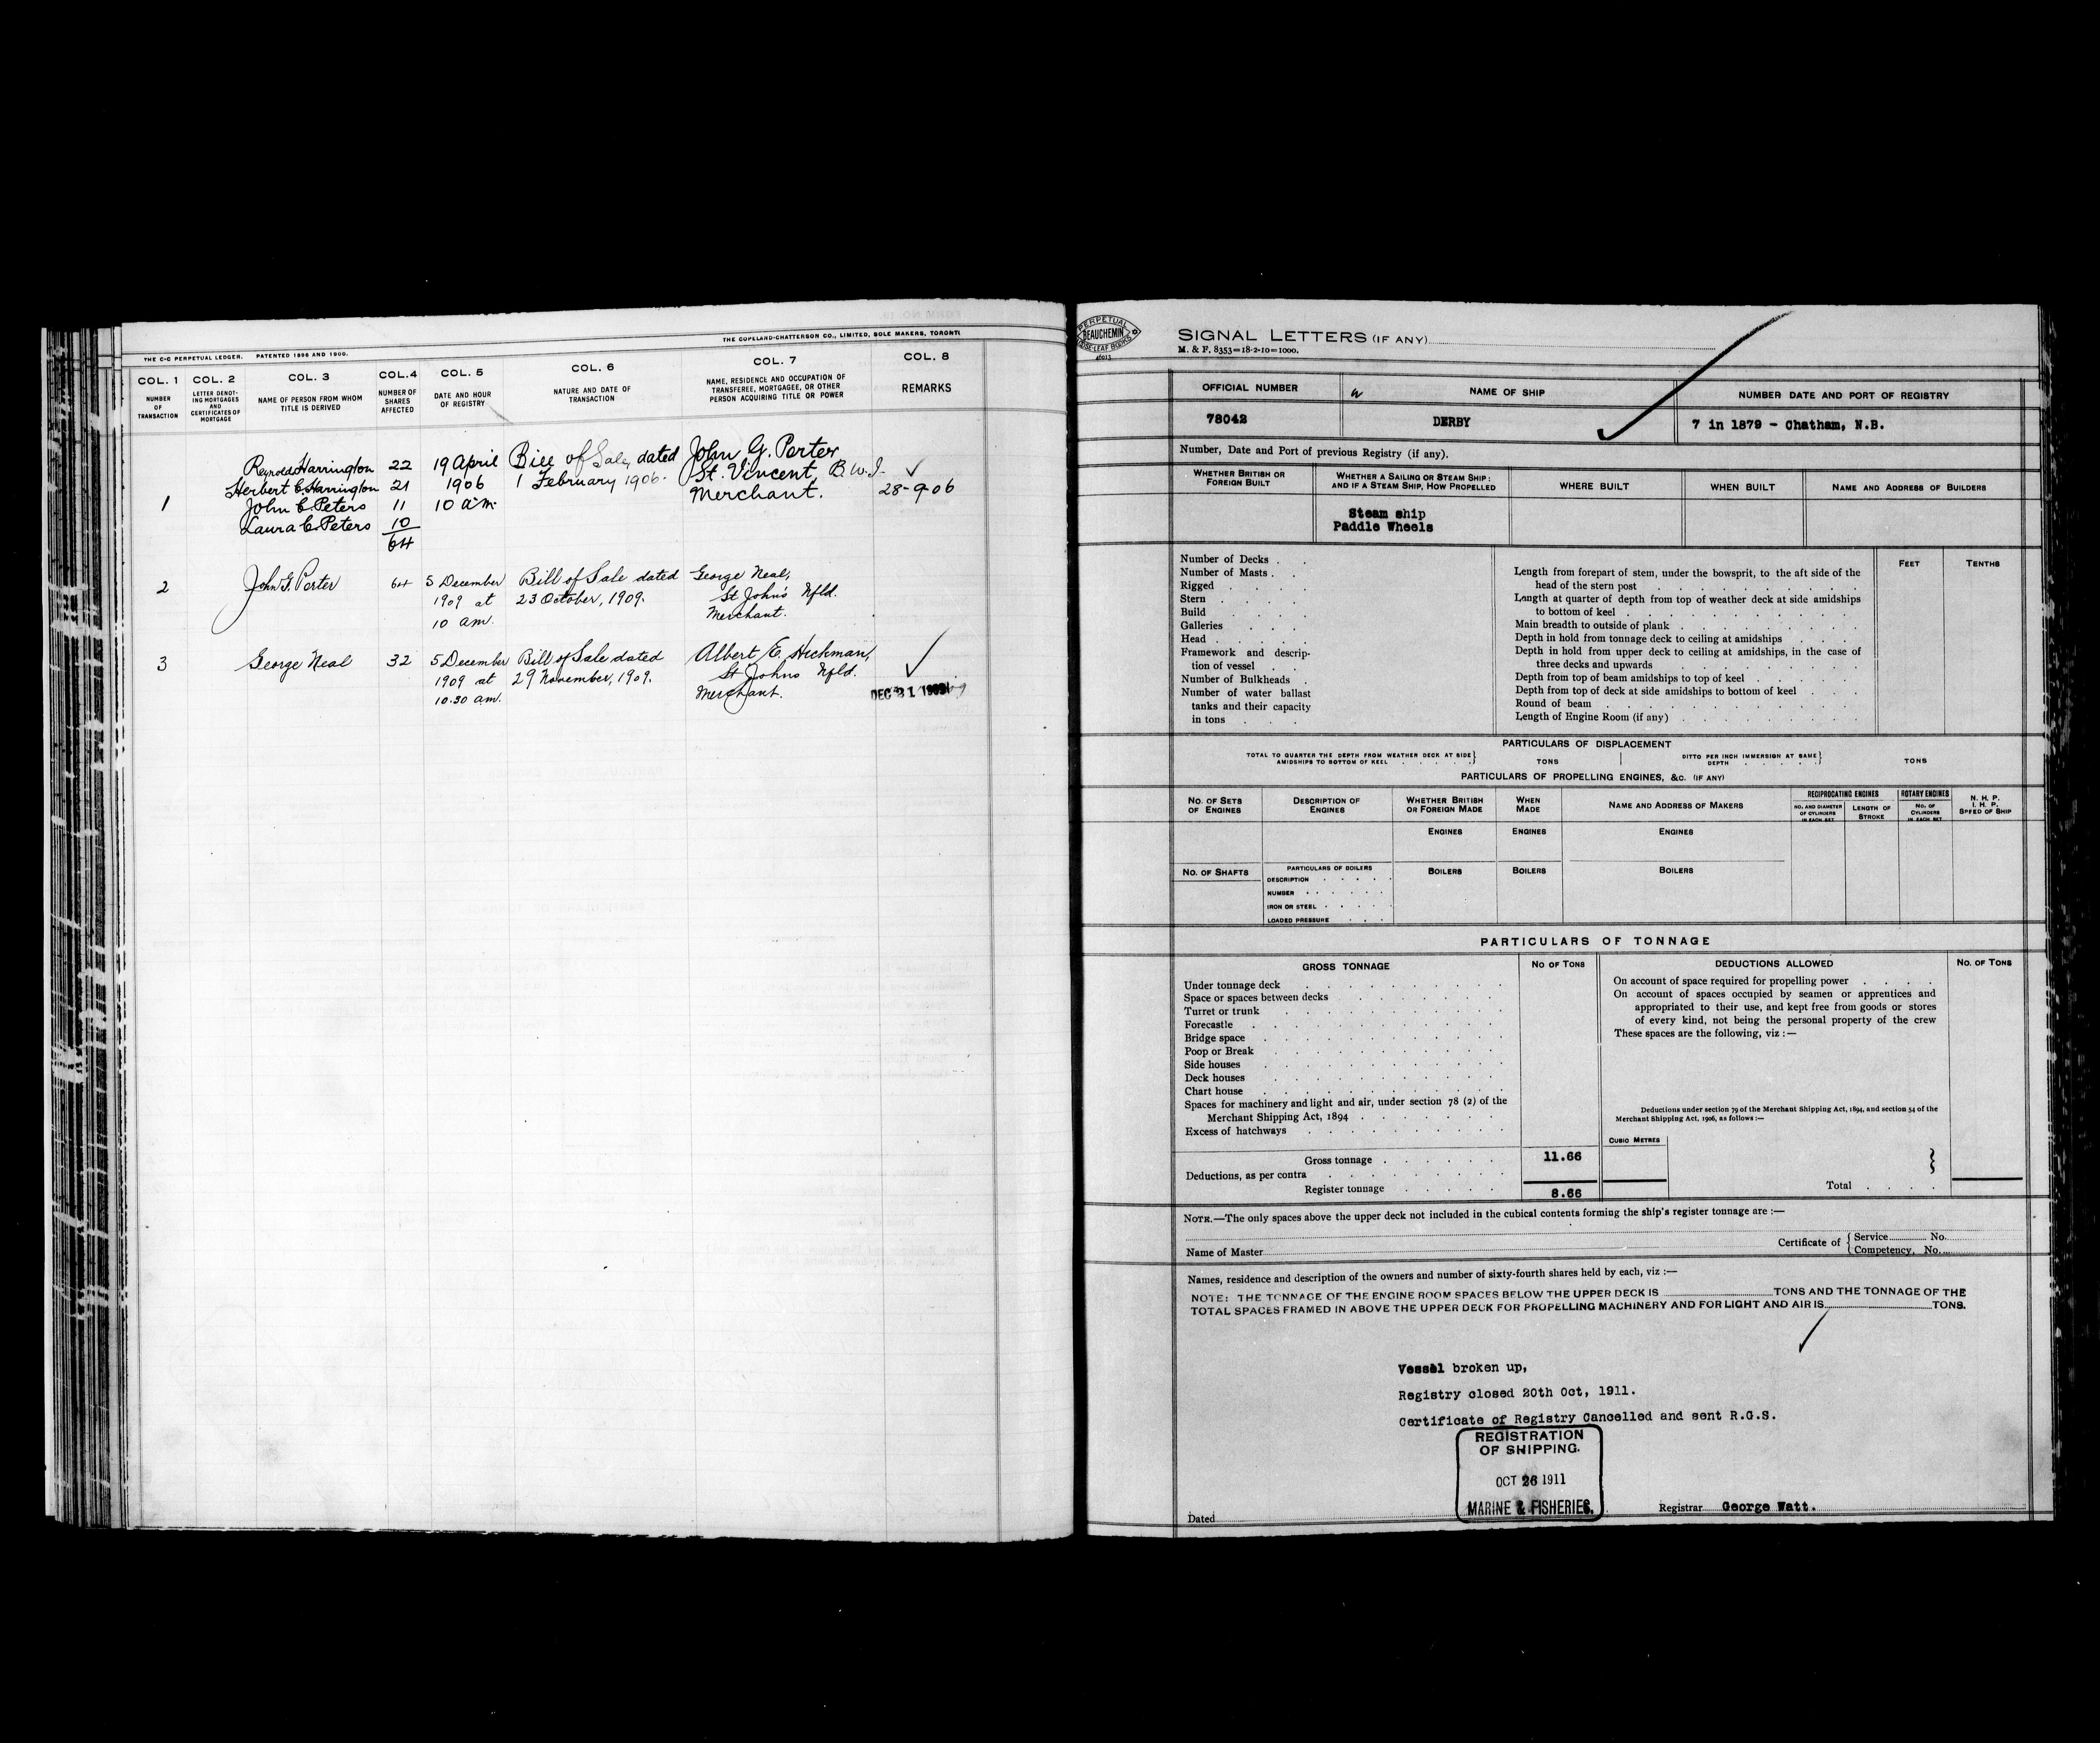 THE C-C PERPETUAL LEDGER. PATENTED 1896 AND 1900.
THE COPELAND-CHATTERSON CO., LIMITED, SOLE MAKERS, TORONTO
COL. 1 COL. 2 COL. 3 COL. 4 COL. 5 COL. 6 COL. 7 COL. 8
NUMBER OF TRANSACTION
LETTER DENOTING MORTGAGES AND CERTIFICATES OF MORTGAGE
NAME OF PERSON FROM WHOM TITLE IS DERIVED
NUMBER OF SHARES AFFECTED
DATE AND HOUR OF REGISTRY
NATURE AND DATE OF TRANSACTION
NAME, RESIDENCE AND OCCUPATION OF TRANSFEREE, MORTGAGEE, OR OTHER PERSON ACQUIRING TITLE OR POWER
REMARKS
Reynolds Harrington 22 19 April Bill of Sale, dated John G. Porter
Herbert C. Harrington 21 1906 1 February 1906. St. Vincent, B.W.I.
1 John C. Peters 11 10 a.m. Merchant. 28-9-06
Laura C. Peters 10
64
2 John G. Porter 64 5 December Bill of Sale dated George Neal,
1909 at 23 October, 1909. St John's Nfld.
10 am. Merchant.
3 George Neal 32 5 December Bill of Sale dated Albert E. Hickman,
1909 at 29 November, 1909. St Johns Nfld.
10.30 am. Merchant. DEC 31 1909
PERPETUAL
BEAUCHEMIN
LOOSE-LEAF BOOKS
SIGNAL LETTERS (IF ANY)
M. & F. 8353=18-2-10=1000.
OFFICIAL NUMBER NAME OF SHIP NUMBER DATE AND PORT OF REGISTRY
78042 DERBY 7 in 1879 - Chatham, N.B.
Number, Date and Port of previous Registry (if any).
WHETHER BRITISH OR FOREIGN BUILT
WHETHER A SAILING OR STEAM SHIP: AND IF A STEAM SHIP, HOW PROPELLED
WHERE BUILT
WHEN BUILT
NAME AND ADDRESS OF BUILDERS
Steam ship
Paddle Wheels
Number of Decks
Number of Masts
Rigged
Stern
Build
Galleries
Head
Framework and descrip-
tion of vessel
Number of Bulkheads
Number of water ballast
tanks and their capacity
in tons
FEET TENTHS
Length from forepart of stem, under the bowsprit, to the aft side of the
head of the stern post
Length at quarter of depth from top of weather deck at side amidships
to bottom of keel
Main breadth to outside of plank
Depth in hold from tonnage deck to ceiling at amidships
Depth in hold from upper deck to ceiling at amidships, in the case of
three decks and upwards
Depth from top of beam amidships to top of keel
Depth from top of deck at side amidships to bottom of keel
Round of beam
Length of Engine Room (if any)
PARTICULARS OF DISPLACEMENT
TOTAL TO QUARTER THE DEPTH FROM WEATHER DECK AT SIDE AMIDSHIPS TO BOTTOM OF KEEL TONS
DITTO PER INCH IMMERSION AT SAME DEPTH TONS
PARTICULARS OF PROPELLING ENGINES, &C. (IF ANY)
NO. OF SETS OF ENGINES
DESCRIPTION OF ENGINES
WHETHER BRITISH OR FOREIGN MADE
WHEN MADE
NAME AND ADDRESS OF MAKERS
RECIPROCATING ENGINES
NO. AND DIAMETER OF CYLINDERS IN EACH SET
LENGTH OF STROKE
ROTARY ENGINES
NO. OF CYLINDERS IN EACH SET
N. H. P.
I. H. P.
SPEED OF SHIP
ENGINES ENGINES ENGINES
NO. OF SHAFTS
PARTICULARS OF BOILERS
DESCRIPTION
NUMBER
IRON OR STEEL
LOADED PRESSURE
BOILERS BOILERS BOILERS
PARTICULARS OF TONNAGE
GROSS TONNAGE NO OF TONS DEDUCTIONS ALLOWED NO. OF TONS
Under tonnage deck
Space or spaces between decks
Turret or trunk
Forecastle
Bridge space
Poop or Break
Side houses
Deck houses
Chart house
Spaces for machinery and light and air, under section 78 (2) of the
Merchant Shipping Act, 1894
Excess of hatchways
Gross tonnage 11.66
Deductions, as per contra
Register tonnage 8.66
On account of space required for propelling power
On account of spaces occupied by seamen or apprentices and
appropriated to their use, and kept free from goods or stores
of every kind, not being the personal property of the crew
These spaces are the following, viz :—
Deductions under section 79 of the Merchant Shipping Act, 1894, and section 54 of the
Merchant Shipping Act, 1906, as follows :—
CUBIC METRES
Total
NOTE.—The only spaces above the upper deck not included in the cubical contents forming the ship's register tonnage are :—
Name of Master
Certificate of Service No.
Competency, No.
Names, residence and description of the owners and number of sixty-fourth shares held by each, viz :—
NOTE: THE TONNAGE OF THE ENGINE ROOM SPACES BELOW THE UPPER DECK IS TONS AND THE TONNAGE OF THE
TOTAL SPACES FRAMED IN ABOVE THE UPPER DECK FOR PROPELLING MACHINERY AND FOR LIGHT AND AIR IS TONS.
Vessel broken up,
Registry closed 20th Oct, 1911.
Certificate of Registry Cancelled and sent R.G.S.
REGISTRATION
OF SHIPPING.
OCT 26 1911
MARINE & FISHERIES.
Dated
Registrar George Watt.